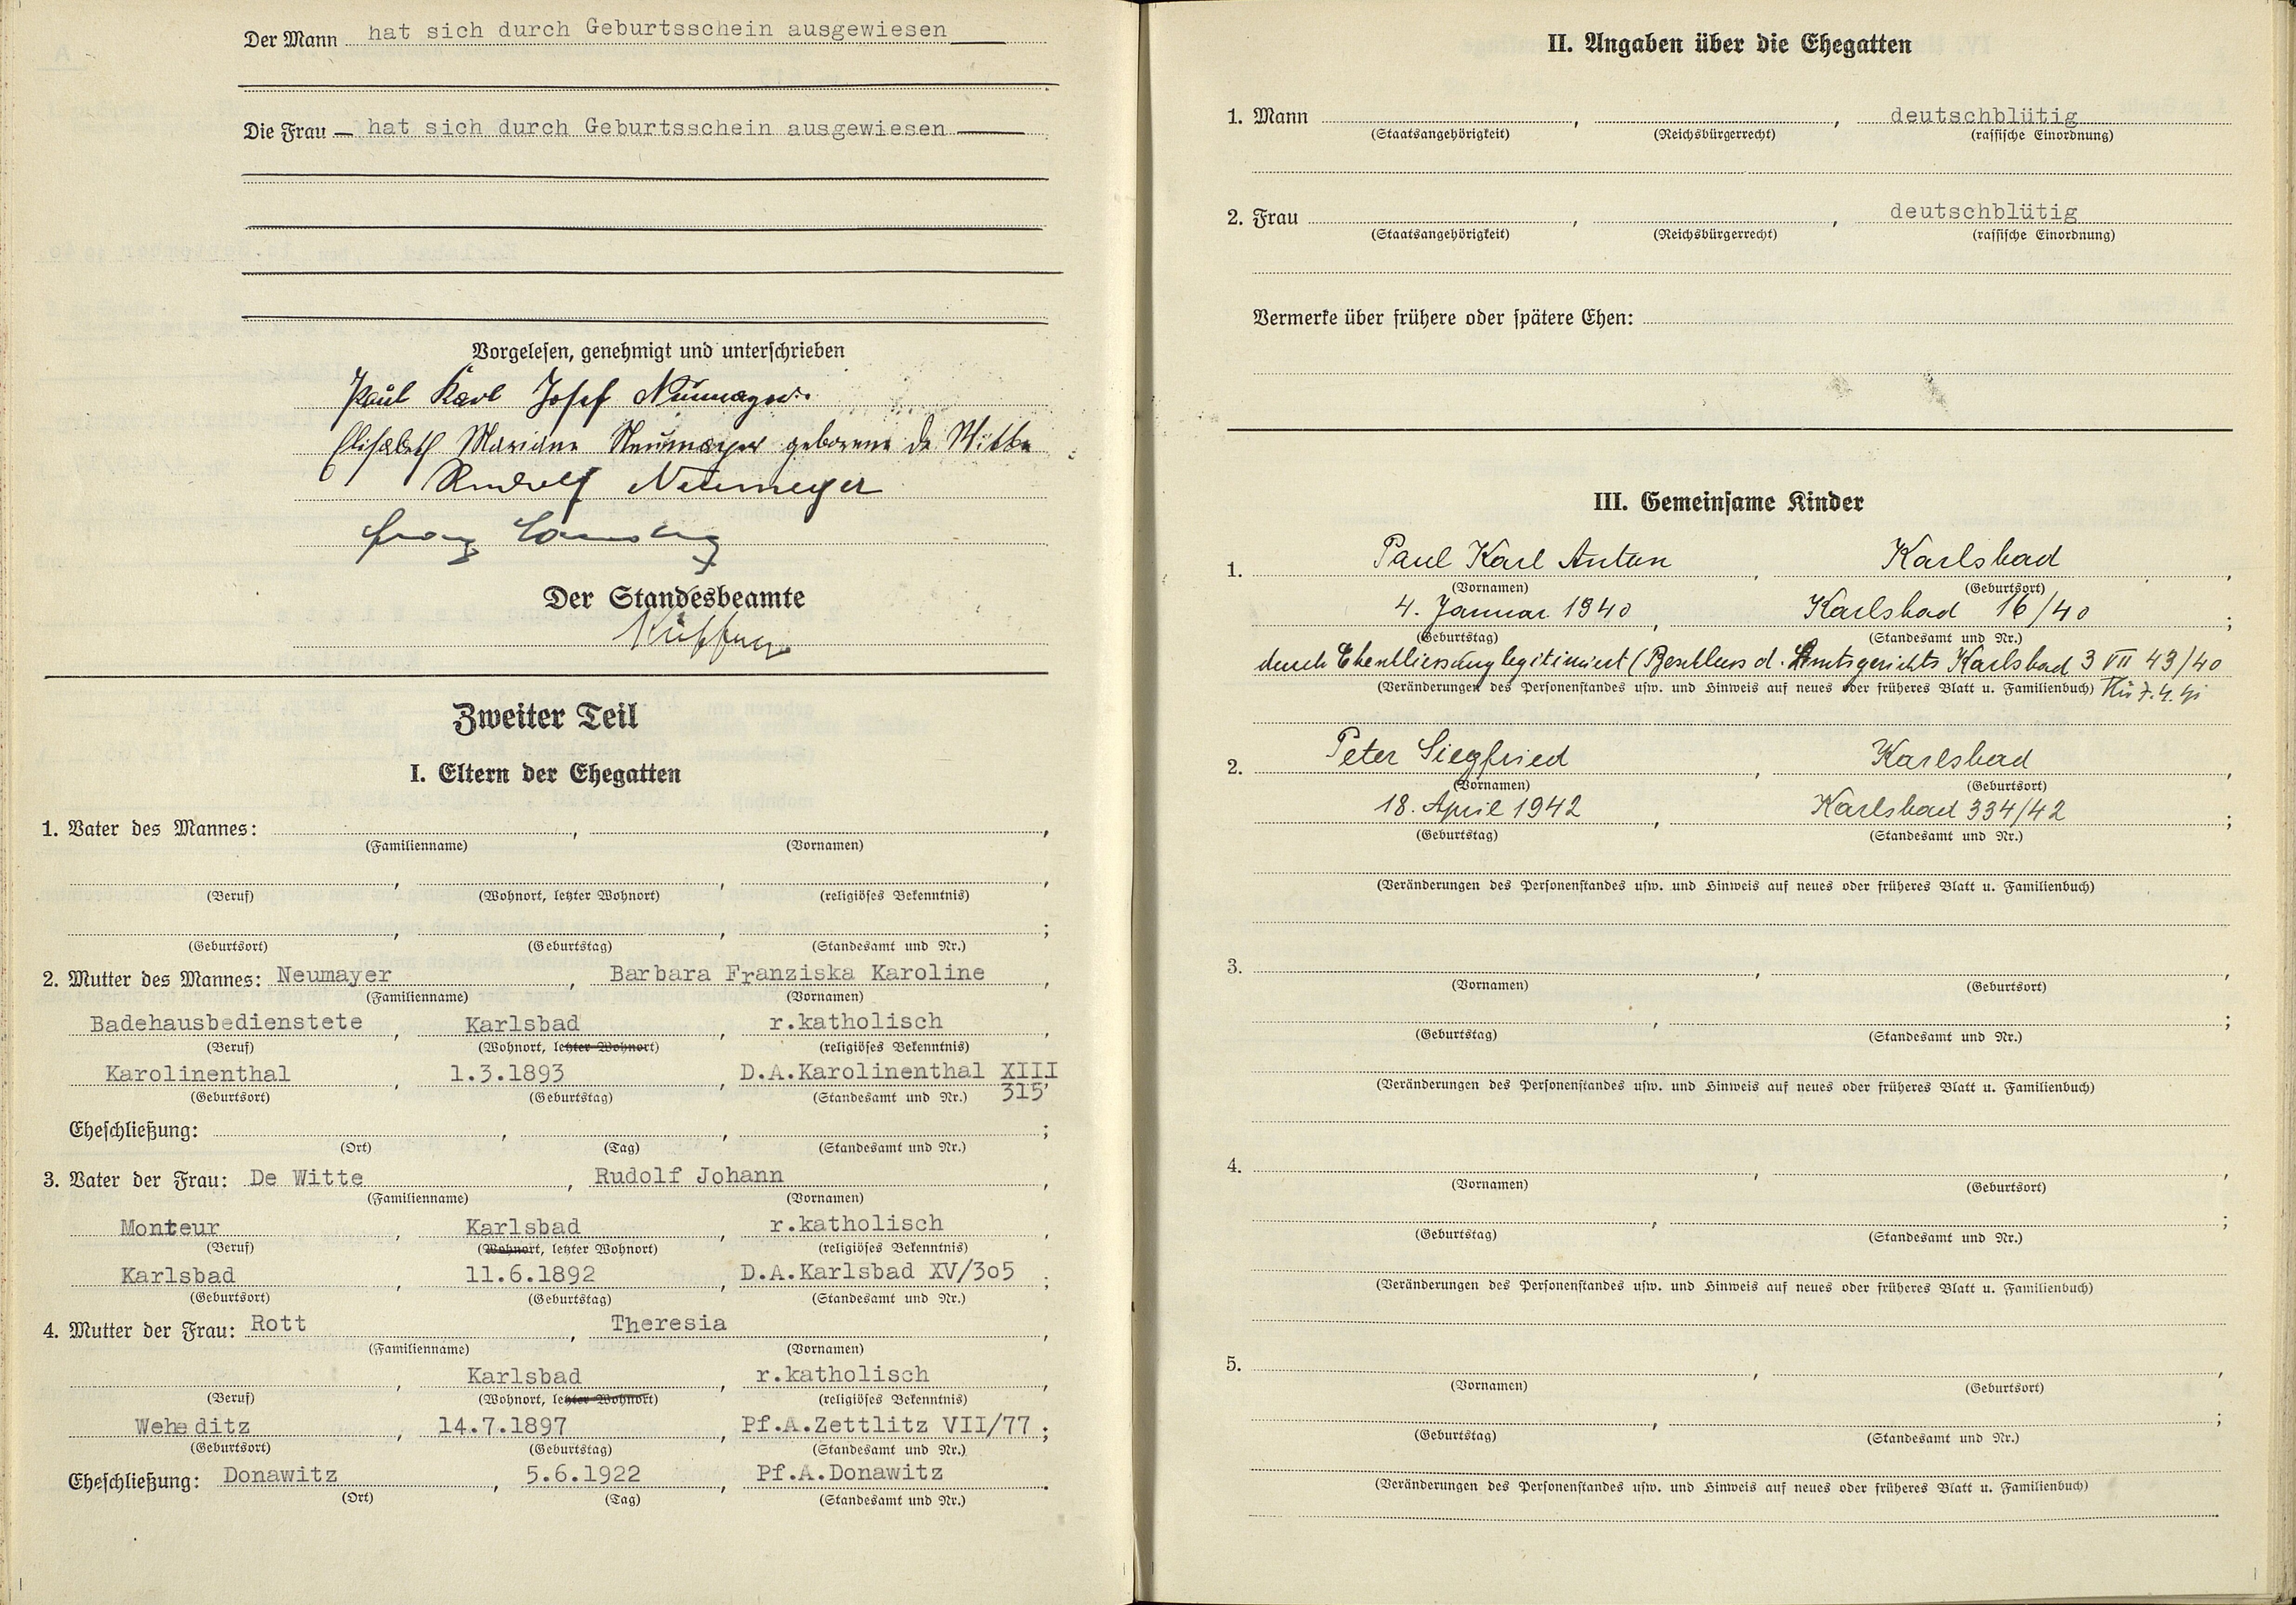 Der Mann hat sich durch Geburtsschein ausgewiesen
Die Frau — hat sich durch Geburtsschein ausgewiesen
Vorgelesen, genehmigt und unterschrieben
Paul Karl Josef Neumayer.
Elisabeth Mariane Neumayer geborene de Witte
Rudolf Neumeyer
Franz
Der Standesbeamte
Zweiter Teil
I. Eltern der Ehegatten
1. Vater des Mannes: , ,
(Familienname) (Vornamen)
, , ,
(Beruf) (Wohnort, letzter Wohnort) (religiöses Bekenntnis)
, , ;
(Geburtsort) (Geburtstag) (Standesamt und Nr.)
2. Mutter des Mannes: Neumayer , Barbara Franziska Karoline ,
(Familienname) (Vornamen)
Badehausbedienstete , Karlsbad , r.katholisch ,
(Beruf) (Wohnort, letzter Wohnort) (religiöses Bekenntnis)
Karolinenthal , 1.3.1893 , D.A.Karolinenthal XIII
(Geburtsort) (Geburtstag) (Standesamt und Nr.) 315
Eheschließung: , , ;
(Ort) (Tag) (Standesamt und Nr.)
3. Vater der Frau: De Witte , Rudolf Johann ,
(Familienname) (Vornamen)
Monteur , Karlsbad , r.katholisch ,
(Beruf) (Wohnort, letzter Wohnort) (religiöses Bekenntnis)
Karlsbad , 11.6.1892 , D.A.Karlsbad XV/3o5 ;
(Geburtsort) (Geburtstag) (Standesamt und Nr.)
4. Mutter der Frau: Rott , Theresia ,
(Familienname) (Vornamen)
, Karlsbad , r.katholisch ,
(Beruf) (Wohnort, letzter Wohnort) (religiöses Bekenntnis)
Weheditz , 14.7.1897 , Pf.A.Zettlitz VII/77 ;
(Geburtsort) (Geburtstag) (Standesamt und Nr.)
Eheschließung: Donawitz , 5.6.1922 , Pf.A.Donawitz .
(Ort) (Tag) (Standesamt und Nr.)
II. Angaben über die Ehegatten
1. Mann , , deutschblütig
(Staatsangehörigkeit) (Reichsbürgerrecht) (rassische Einordnung)
2. Frau , , deutschblütig
(Staatsangehörigkeit) (Reichsbürgerrecht) (rassische Einordnung)
Vermerke über frühere oder spätere Ehen:
III. Gemeinsame Kinder
1. Paul Karl Anton , Karlsbad ,
(Vornamen) (Geburtsort)
4. Januar 1940 , Karlsbad 16/40 ;
(Geburtstag) (Standesamt und Nr.)
durch Eheschliessung legitimiert (Beschluss d. Amtsgerichts Karlsbad 3 VII 43/40
(Veränderungen des Personenstandes usw. und Hinweis auf neues oder früheres Blatt u. Familienbuch)
2. Peter Siegfried , Karlsbad ,
(Vornamen) (Geburtsort)
18. April 1942 , Karlsbad 334/42 ;
(Geburtstag) (Standesamt und Nr.)
(Veränderungen des Personenstandes usw. und Hinweis auf neues oder früheres Blatt u. Familienbuch)
3. , ,
(Vornamen) (Geburtsort)
, ;
(Geburtstag) (Standesamt und Nr.)
(Veränderungen des Personenstandes usw. und Hinweis auf neues oder früheres Blatt u. Familienbuch)
4. , ,
(Vornamen) (Geburtsort)
, ;
(Geburtstag) (Standesamt und Nr.)
(Veränderungen des Personenstandes usw. und Hinweis auf neues oder früheres Blatt u. Familienbuch)
5. , ,
(Vornamen) (Geburtsort)
, ;
(Geburtstag) (Standesamt und Nr.)
(Veränderungen des Personenstandes usw. und Hinweis auf neues oder früheres Blatt u. Familienbuch)